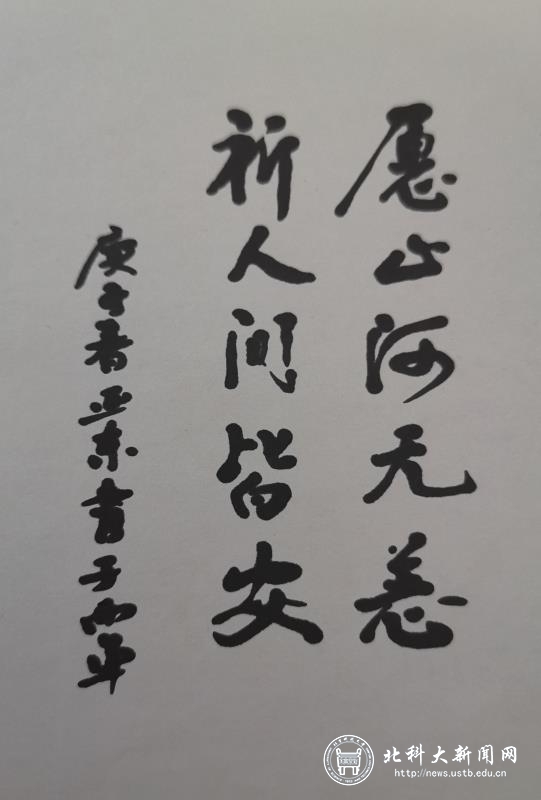 愿山河无恙
祈人间皆安
庚子春亚东书于雨年
北科大新闻网
http://news.ustb.edu.cn